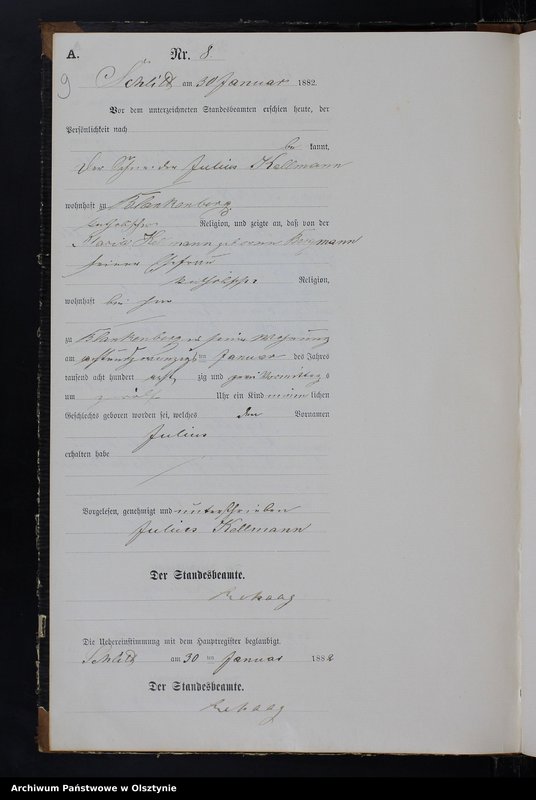 A.
Nr. 8.
9
Schlitt am 30 Januar 1882.
Vor dem unterzeichneten Standesbeamten erschien heute, der
Persönlichkeit nach
be kannt,
der Schneider Julius Kellmann
wohnhaft zu Blankenberg
katholischer Religion, und zeigte an, daß von der
Maria Kellmann geborenen Bergmann
seiner Ehefrau
katholischer Religion,
wohnhaft bei ihm
zu Blankenberg in seiner Wohnung
am achtundzwanzigsten Januar des Jahres
tausend acht hundert achtzig und zwei Vormittags
um zwölf Uhr ein Kind männlichen
Geschlechts geboren worden sei, welches den Vornamen
Julius
erhalten habe
Vorgelesen, genehmigt und unterschrieben
Julius Kellmann
Der Standesbeamte.
Die Uebereinstimmung mit dem Hauptregister beglaubigt.
Schlitt am 30 ten Januar 1882
Der Standesbeamte.
Archiwum Państwowe w Olsztynie